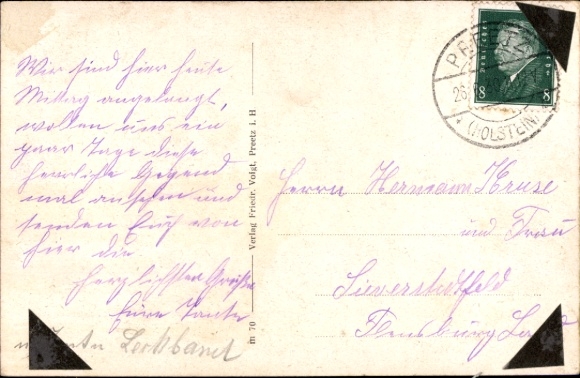 Wir sind hier heute
Mittag angelangt,
wollen uns ein
paar Tage diese
herrliche Gegend
mal ansehen und
senden Euch von
hier die
herzlichsten Grüße
Eure Tante
Verlag Friedr. Voigt, Preetz i. H
m 70
PREETZ
26.
(HOLSTEIN)
8 8
Herrn Hermann Kruse
und Frau
Flensburg